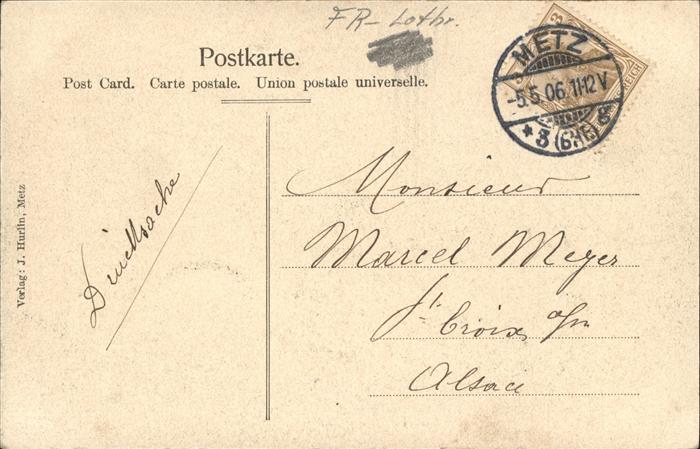 FR-Lothr.
Postkarte.
Post Card. Carte postale. Union postale universelle.
METZ
-5.5.06.11-12V
* 3 (BHF) g
3
REICH
Drucksache
Verlag: J. Hurlin, Metz
Monsieur
Marcel Meyer
St. Croix a/m
Alsace